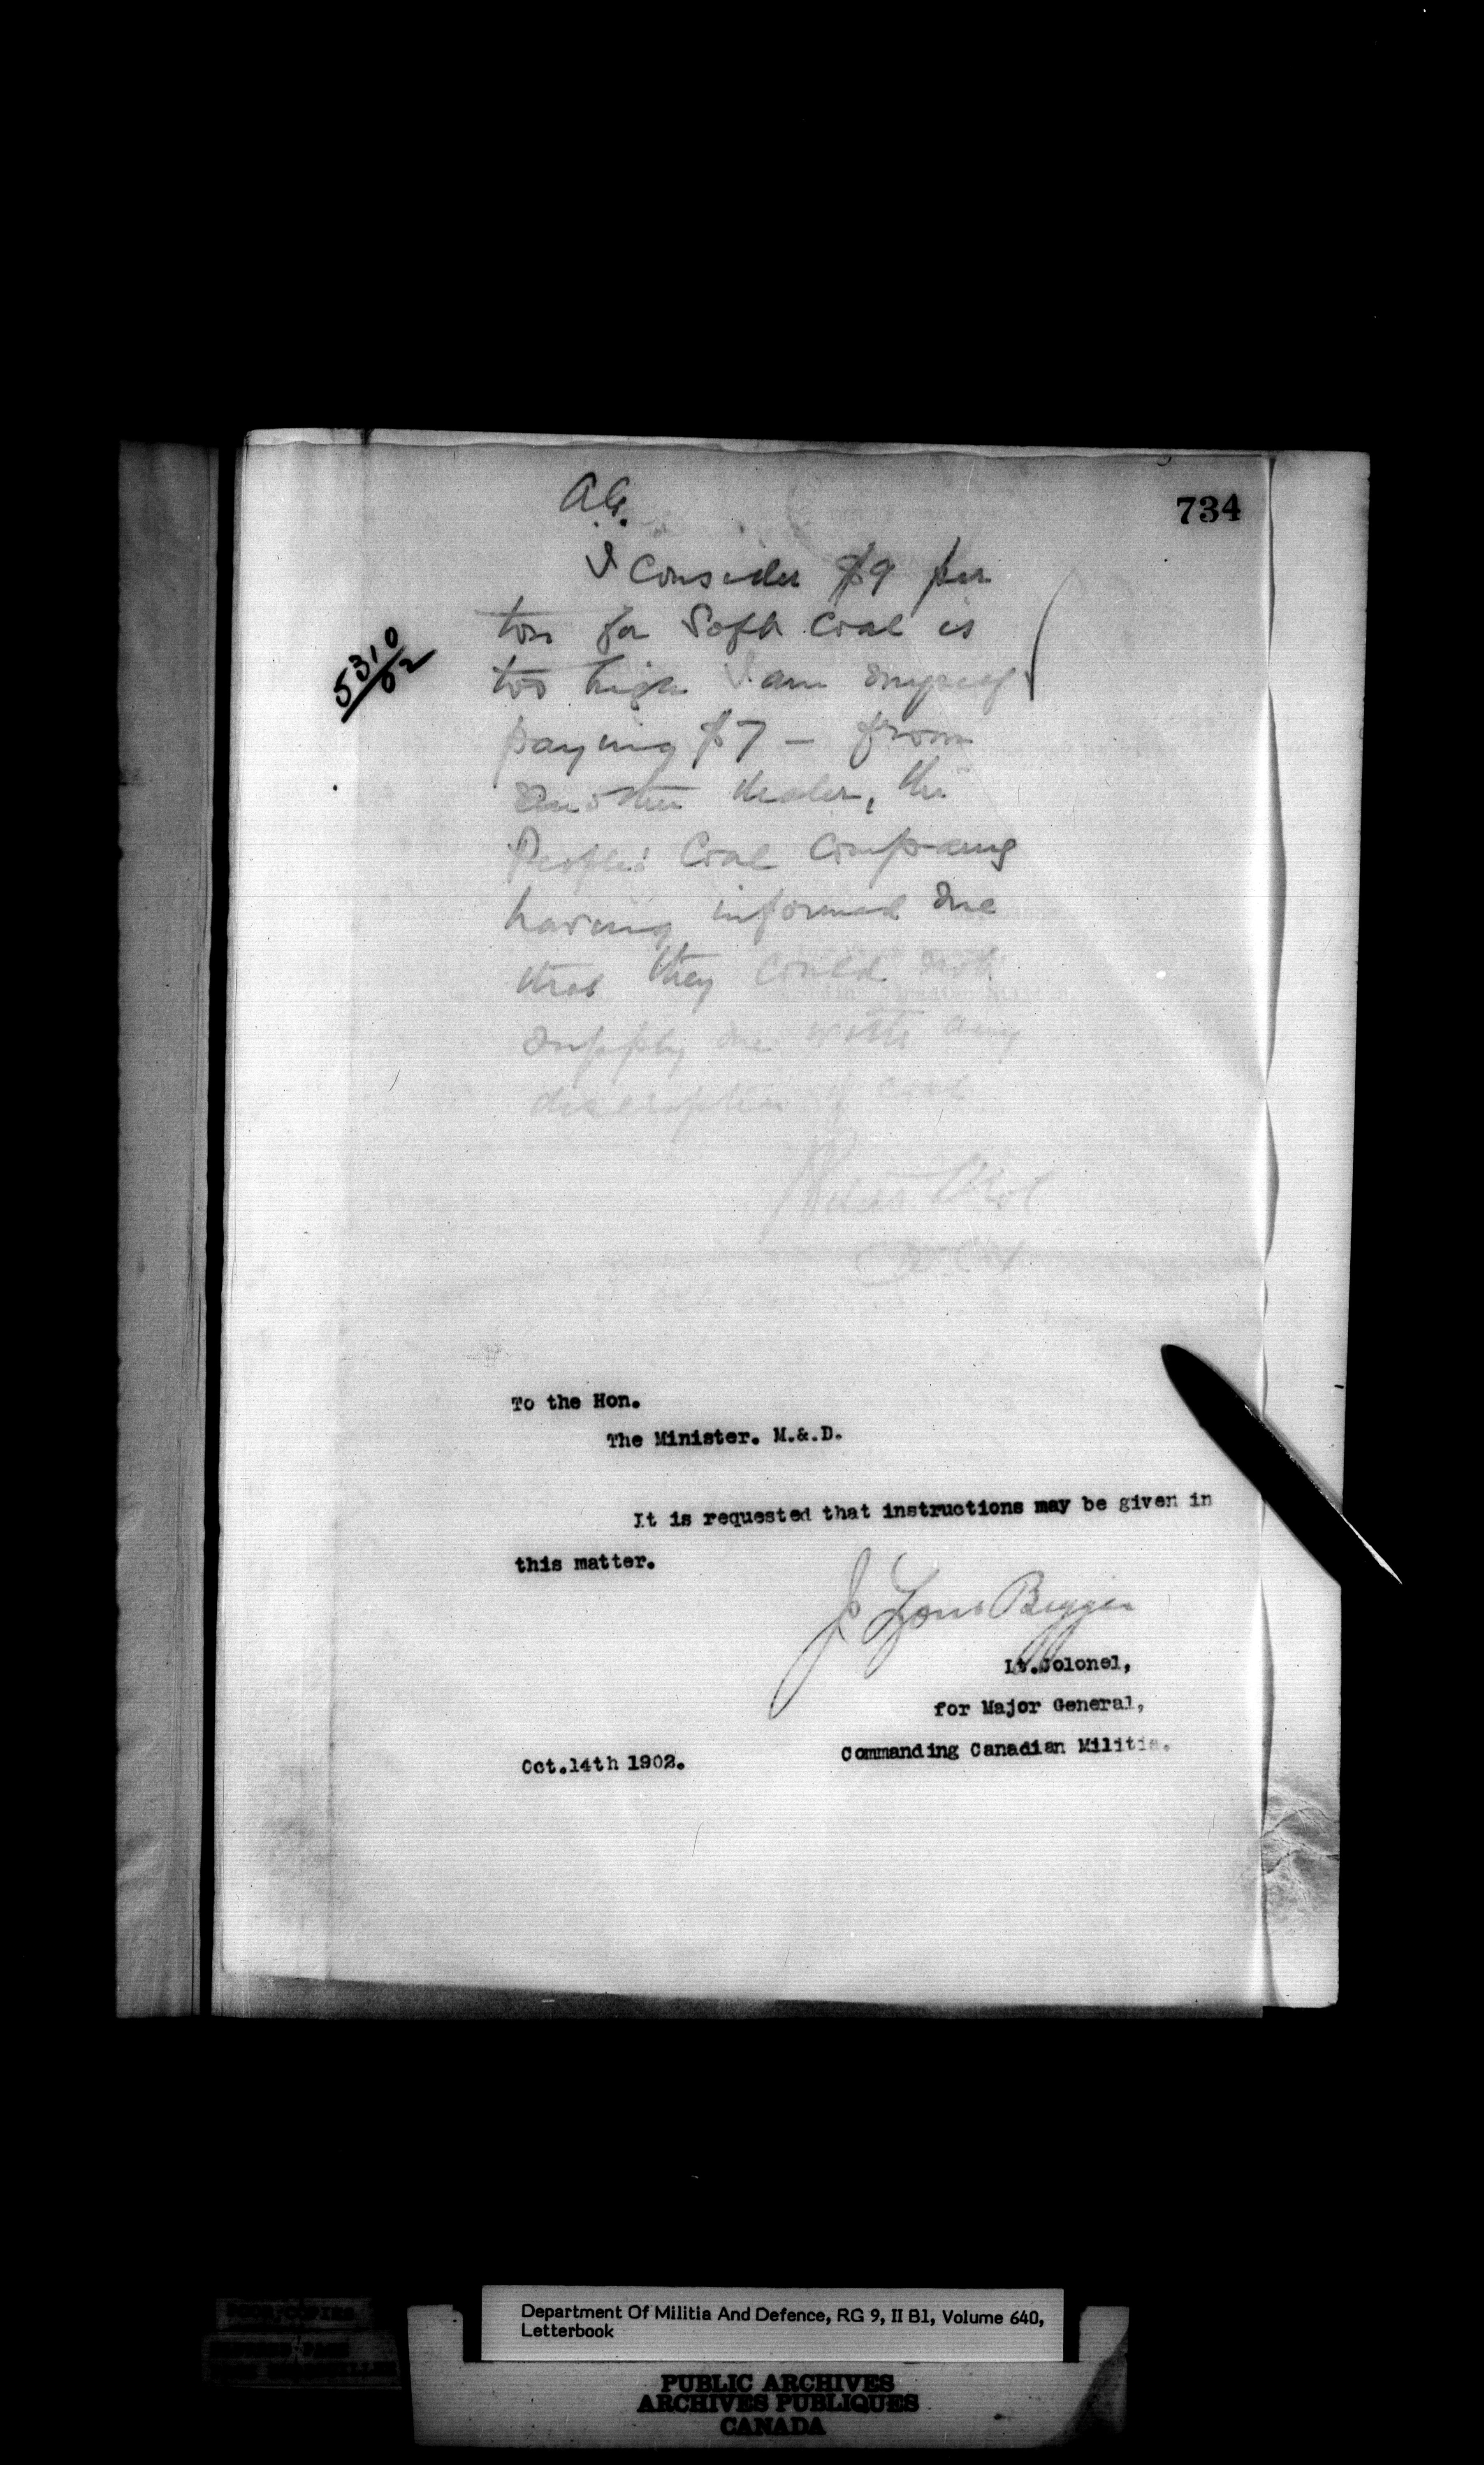 734
A.G.
I consider $9 per
ton for Soft Coal is
too high I am myself
5310/02
paying $7 - from
another dealer, the
People's Coal Company
having informed me
that they could not
supply me with any
description of coal
To the Hon.
The Minister. M.&.D.
It is requested that instructions may be given in
this matter.
Lt.Colonel,
for Major General,
Commanding Canadian Militia.
Oct.14th 1902.
Department Of Militia And Defence, RG 9, II B1, Volume 640,
Letterbook
PUBLIC ARCHIVES
ARCHIVES PUBLIQUES
CANADA